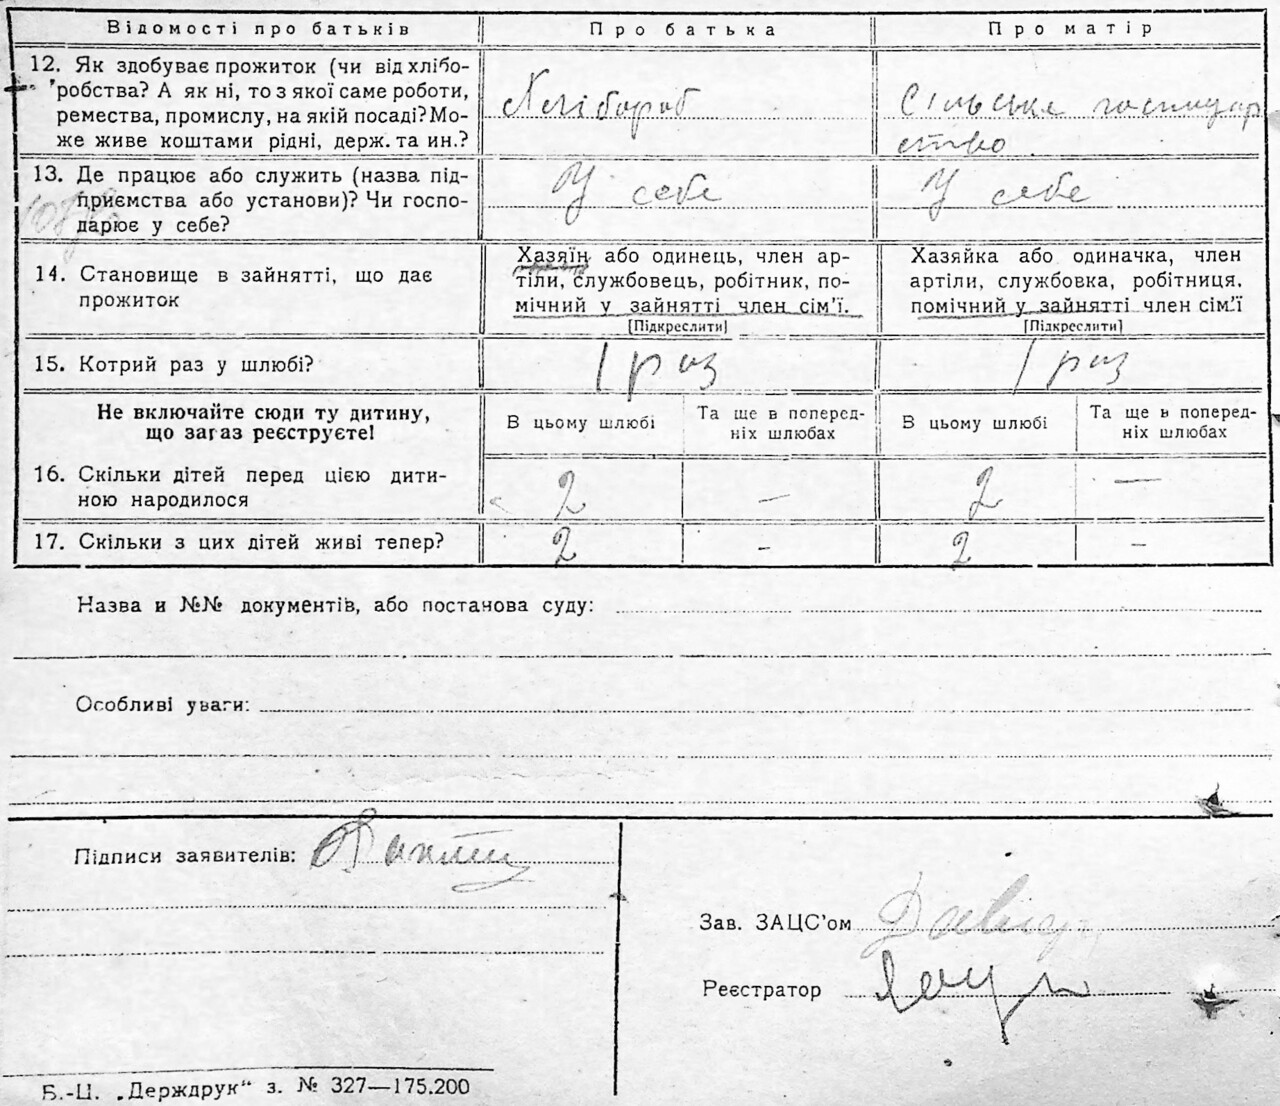 Відомості про батьків Про батька Про матір
12. Як здобуває прожиток (чи від хлібо-
робства? А як ні, то з якої саме роботи,
ремества, промислу, на якій посаді? Мо-
же живе коштами рідні, держ. та ин.?
Хлібороб
Сільське господар
ство
13. Де працює або служить (назва під-
приємства або установи)? Чи госпо-
дарює у себе?
У себе
У себе
14. Становище в зайнятті, що дає
прожиток
Хазяїн або одинець, член ар-
тіли, службовець, робітник, по-
мічний у зайнятті член сім'ї.
[Підкреслити]
Хазяйка або одиначка, член
артіли, службовка, робітниця,
помічний у зайнятті член сім'ї
[Підкреслити]
15. Котрий раз у шлюбі?
1 раз
1 раз
Не включайте сюди ту дитину,
що зараз реєструєте!
В цьому шлюбі
Та ще в поперед-
ніх шлюбах
В цьому шлюбі
Та ще в поперед-
ніх шлюбах
16. Скільки дітей перед цією дити-
ною народилося
2 — 2 —
17. Скільки з цих дітей живі тепер? 2 - 2 -
Назва и №№ документів, або постанова суду:
Особливі уваги:
Підписи заявителів:
Зав. ЗАЦС'ом
Реєстратор
Б.-Ц. „Держдрук“ з. № 327—175.200